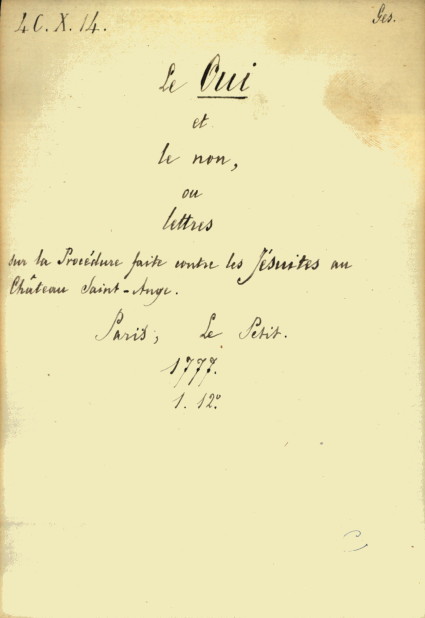 4C.X.14.
Ges.
Le Oui
et
le non,
ou
lettres
sur la Procédure faite contre les Jésuites au
Château Saint-Ange.
Paris, Le Petit.
1777.
1. 12º